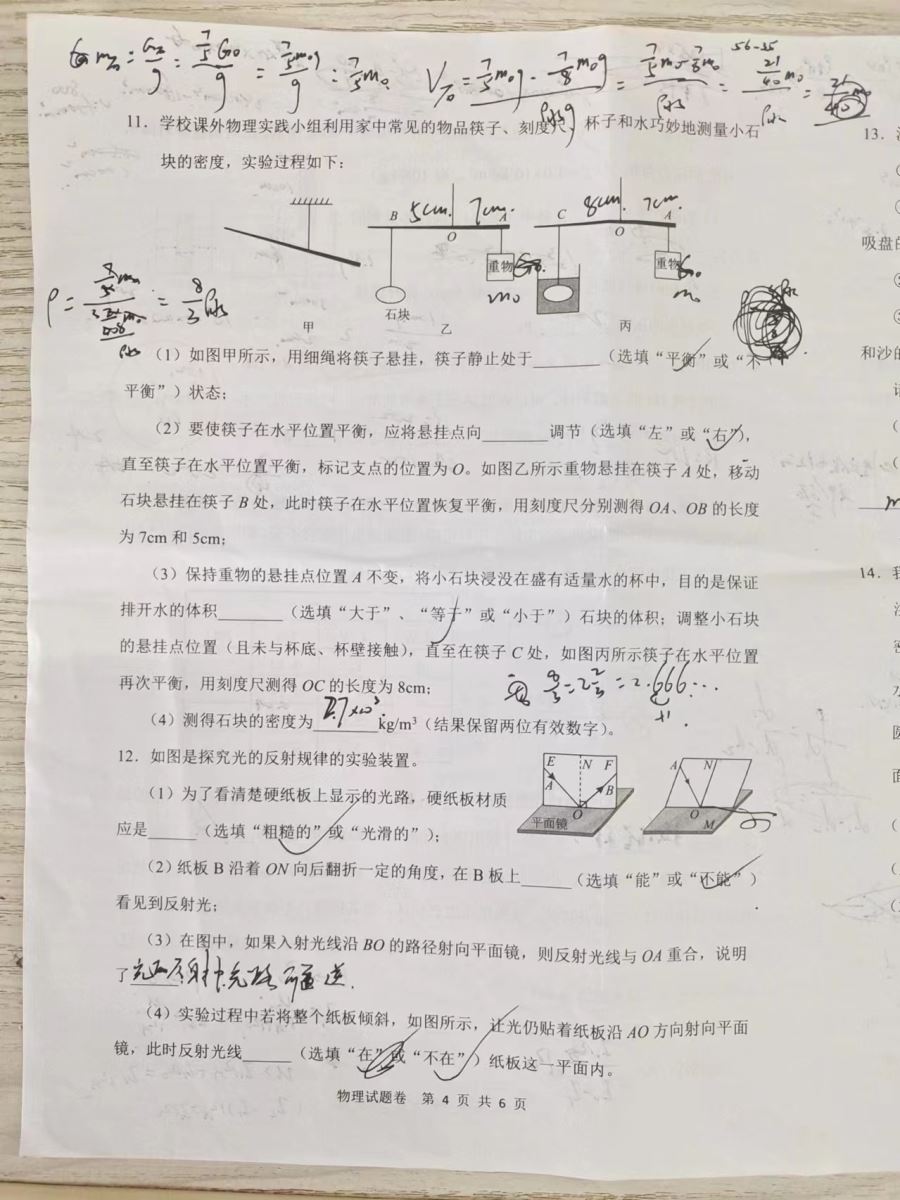 11．学校课外物理实践小组利用家中常见的物品筷子、刻度尺、杯子和水巧妙地测量小石
块的密度，实验过程如下：
B 5cm. 7cm. A
O
重物
石块
m₀
C 8cm. 7cm. A
O
重物 G₀
m₀
甲 乙 丙
（1）如图甲所示，用细绳将筷子悬挂，筷子静止处于______（选填“平衡”或“不
平衡”）状态；
（2）要使筷子在水平位置平衡，应将悬挂点向______调节（选填“左”或“右”），
直至筷子在水平位置平衡，标记支点的位置为 O。如图乙所示重物悬挂在筷子 A 处，移动
石块悬挂在筷子 B 处，此时筷子在水平位置恢复平衡，用刻度尺分别测得 OA、OB 的长度
为 7cm 和 5cm；
（3）保持重物的悬挂点位置 A 不变，将小石块浸没在盛有适量水的杯中，目的是保证
排开水的体积______（选填“大于”、“等于”或“小于”）石块的体积；调整小石块
的悬挂点位置（且未与杯底、杯壁接触），直至在筷子 C 处，如图丙所示筷子在水平位置
再次平衡，用刻度尺测得 OC 的长度为 8cm；
8/3=2 2/3=2.666…
（4）测得石块的密度为 2.7×10³ kg/m³（结果保留两位有效数字）。
12．如图是探究光的反射规律的实验装置。
E N F
A B
O
平面镜
A N
O
M
（1）为了看清楚硬纸板上显示的光路，硬纸板材质
应是______（选填“粗糙的”或“光滑的”）；
（2）纸板 B 沿着 ON 向后翻折一定的角度，在 B 板上______（选填“能”或“不能”）
看见到反射光；
（3）在图中，如果入射光线沿 BO 的路径射向平面镜，则反射光线与 OA 重合，说明
了光的反射中光路可逆.
（4）实验过程中若将整个纸板倾斜，如图所示，让光仍贴着纸板沿 AO 方向射向平面
镜，此时反射光线______（选填“在”或“不在”）纸板这一平面内。
物理试题卷 第 4 页 共 6 页
13．
吸盘的
和沙的
14．我